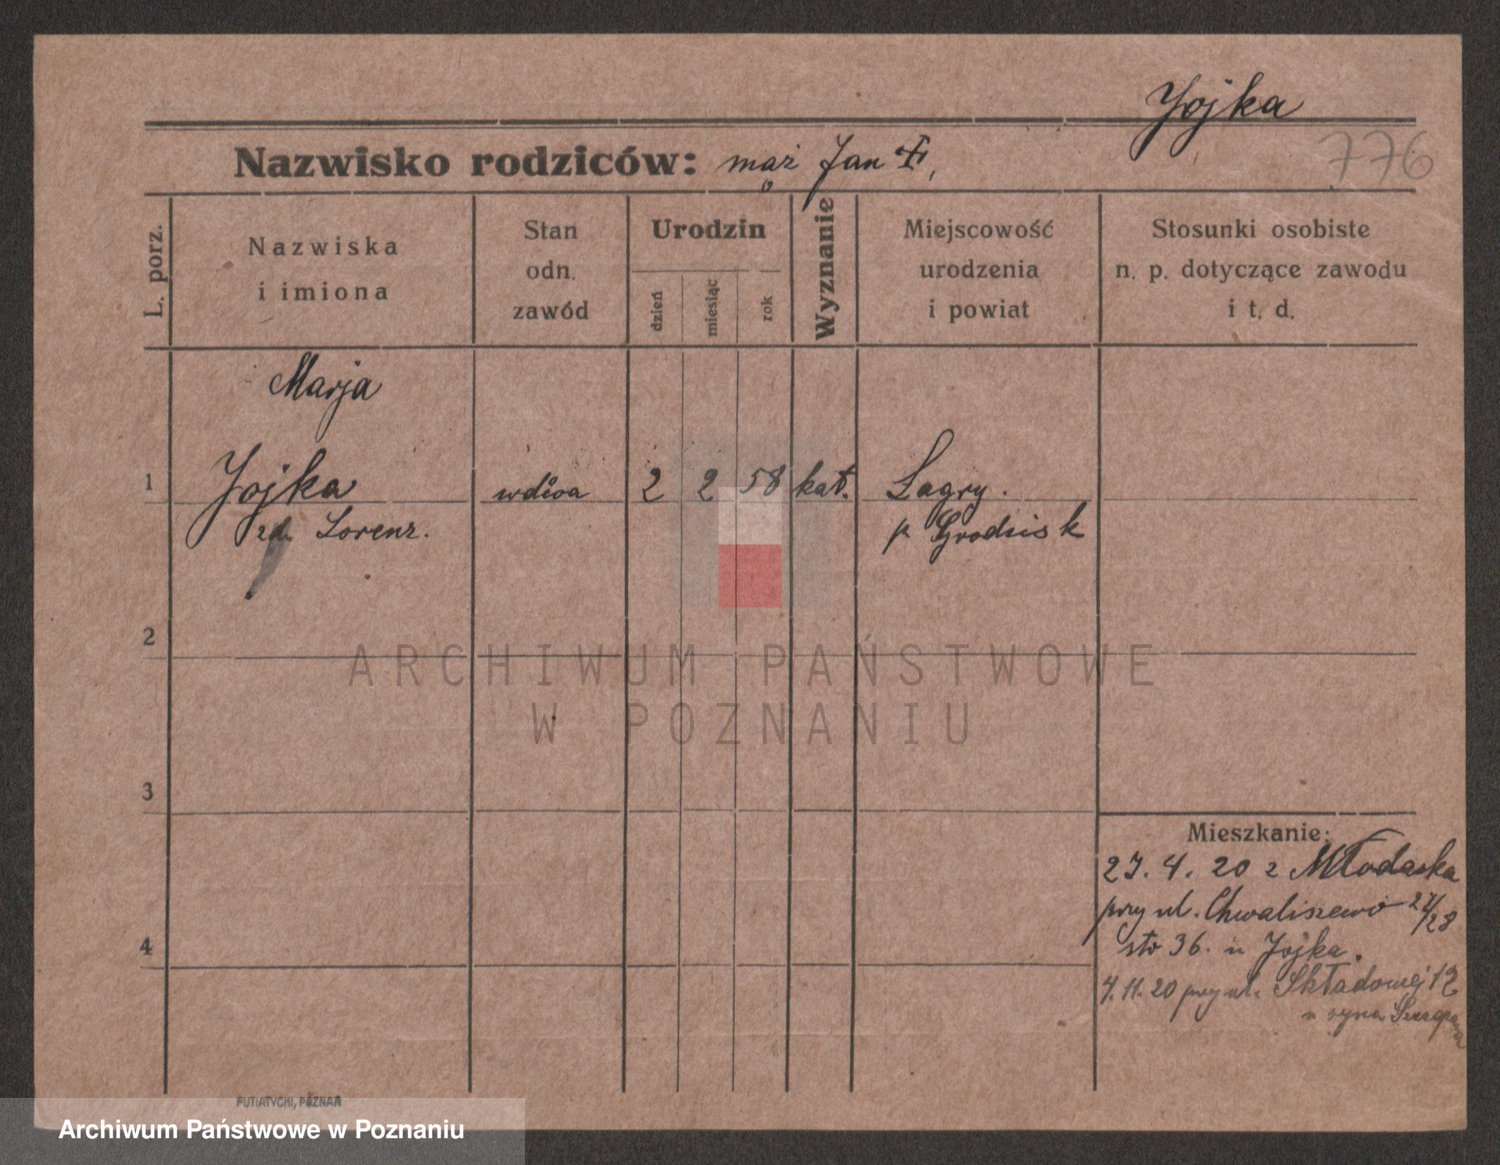 Jojka
776
Nazwisko rodziców: mąż Jan
L. porz.
Nazwiska
i imiona
Stan
odn.
zawód
Urodzin
dzień
miesiąc
rok
Wyznanie
Miejscowość
urodzenia
i powiat
Stosunki osobiste
n. p. dotyczące zawodu
i t. d.
Marja
1 Jojka wdowa 2 2 58 kat. Sagry.
zd. Lorenz. p Grodzisk
2
ARCHIWUM PAŃSTWOWE
W POZNANIU
3
Mieszkanie:
27. 4. 20 z Młodaska
przy ul. Chwaliszewo 27/28
4
sto 36. u Jojka.
4. 11. 20 przy ul. Składowej 12
u syna
PUTIATYCKI, POZNAŃ
Archiwum Państwowe w Poznaniu